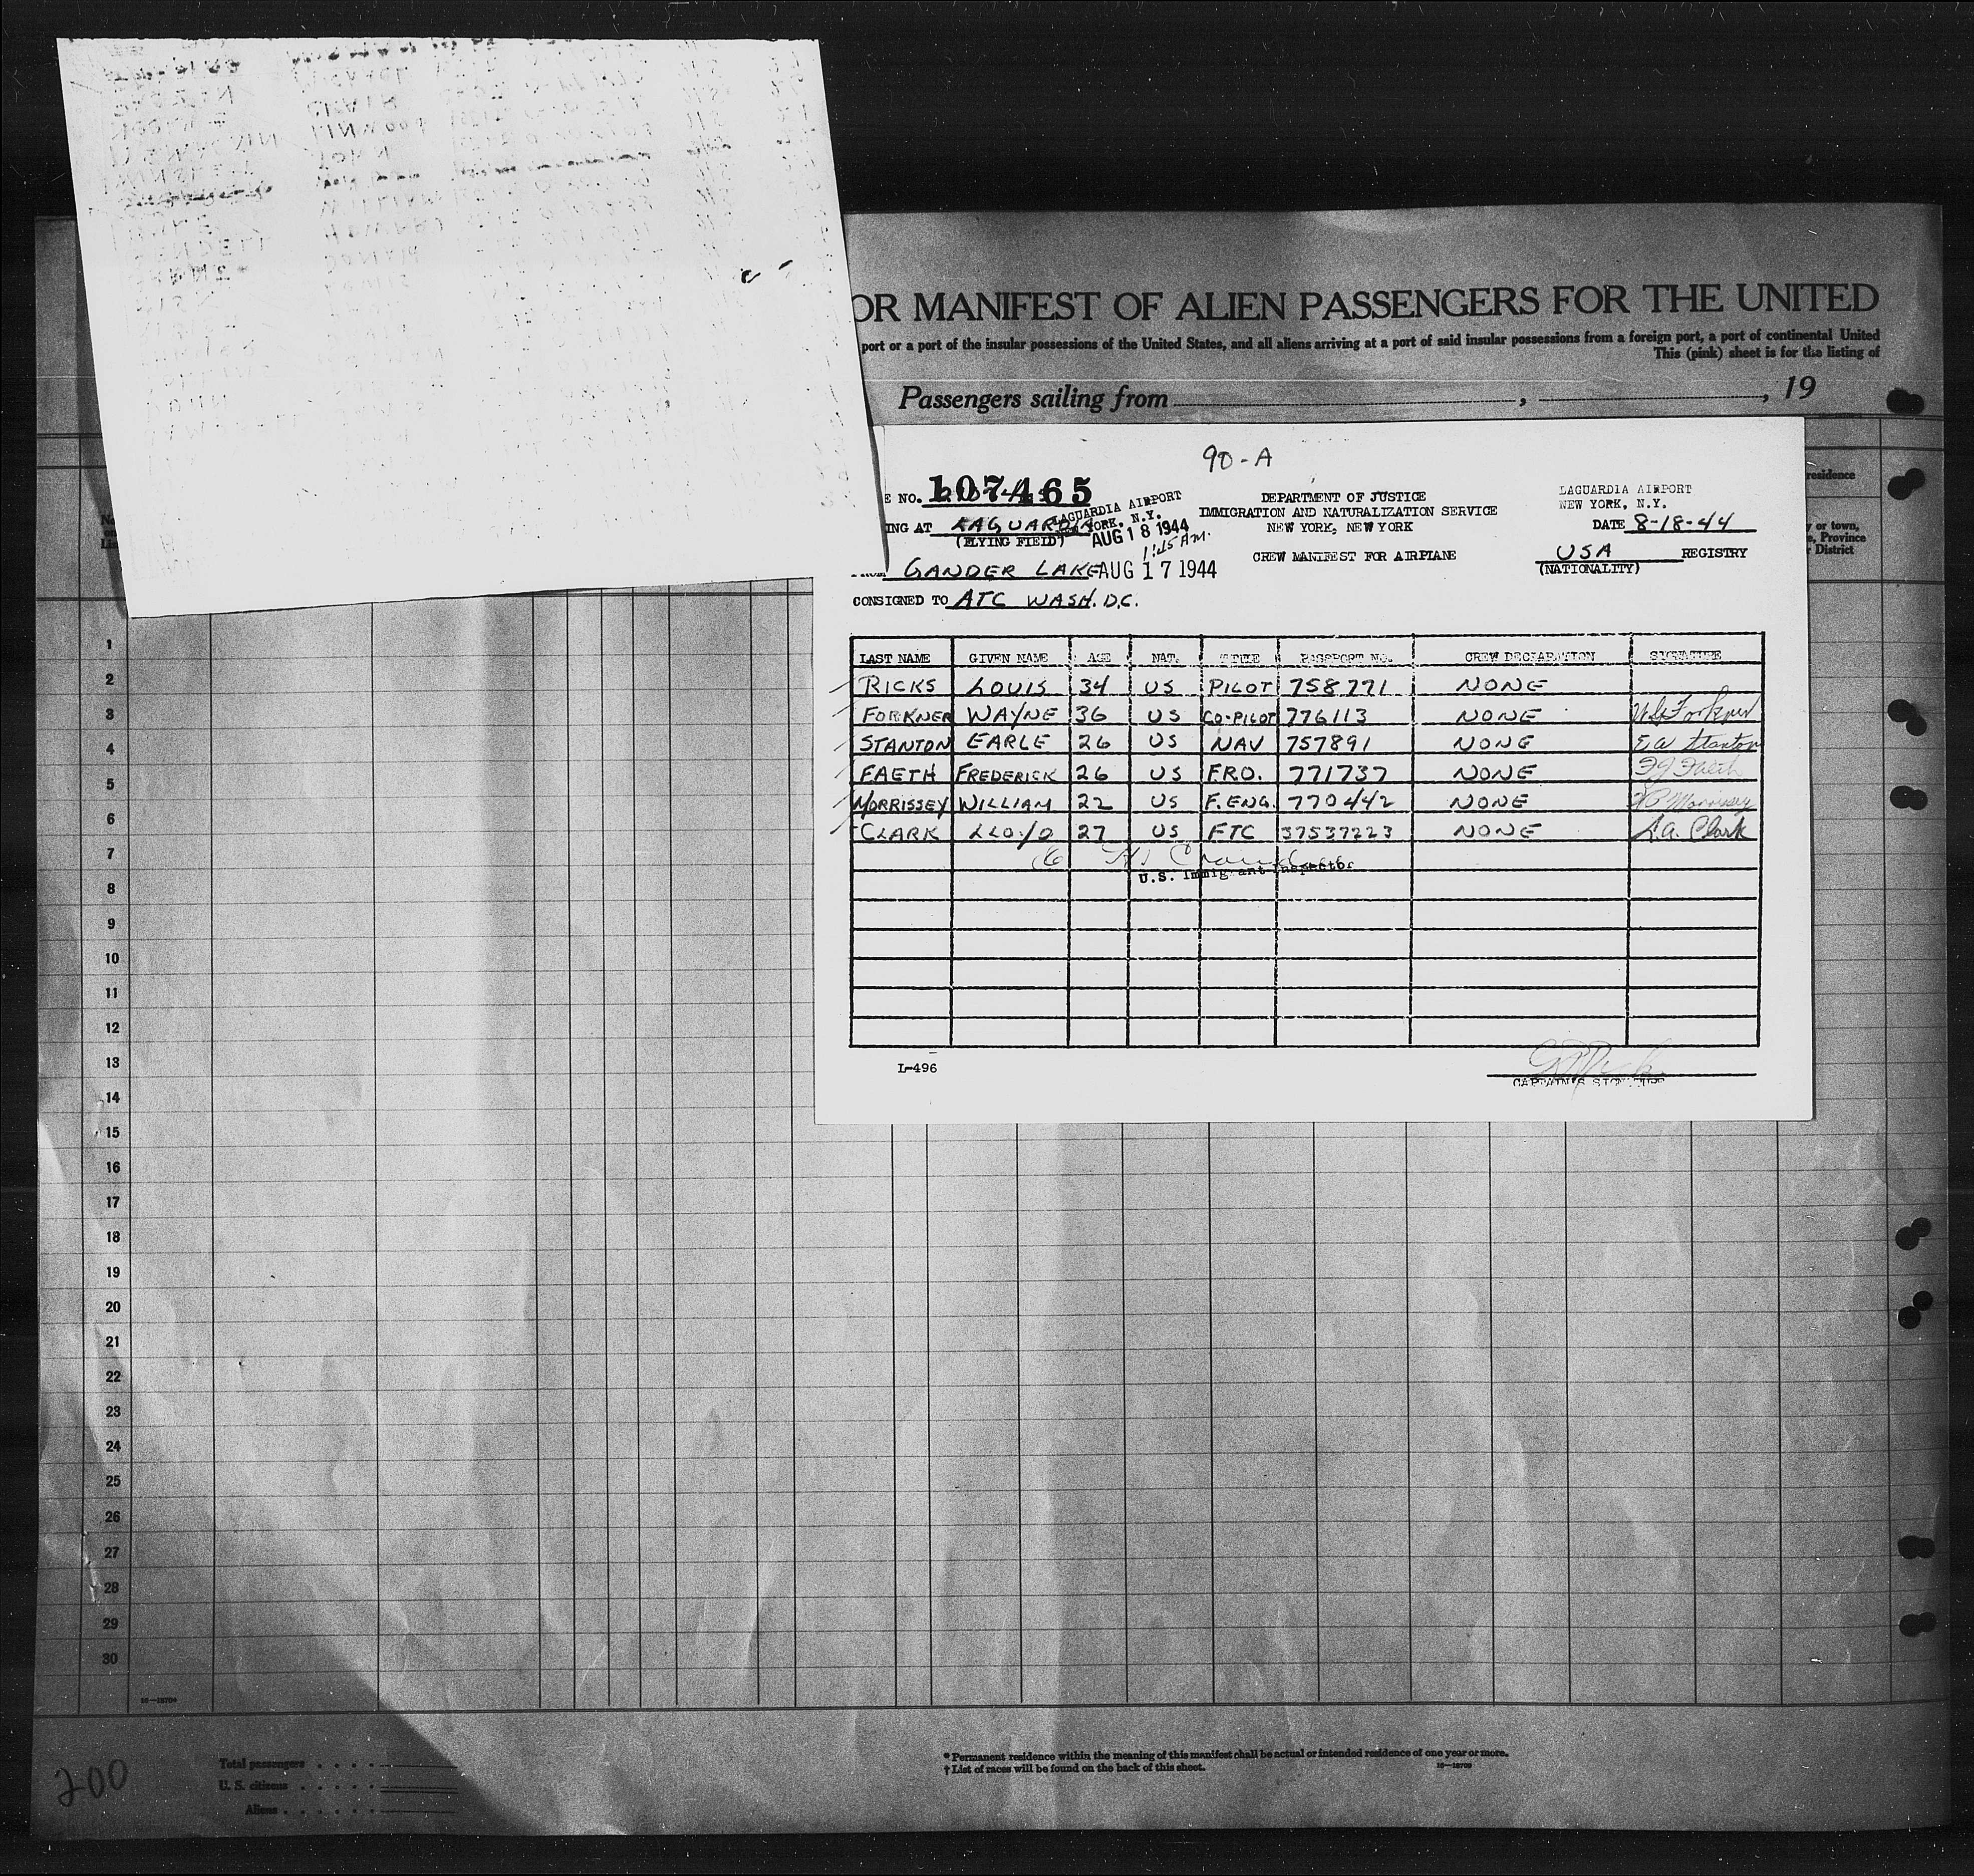 OR MANIFEST OF ALIEN PASSENGERS FOR THE UNITED
port or a port of the insular possessions of the United States, and all aliens arriving at a port of said insular possessions from a foreign port, a port of continental United
This (pink) sheet is for the listing of
Passengers sailing from , , 19
90-A
E NO. 107465
LAGUARDIA AIRPORT
NEW YORK, N.Y.
AUG 18 1944
1:45 AM.
ING AT LAGUARDIA
(FLYING FIELD)
GANDER LAKE AUG 17 1944
CONSIGNED TO ATC WASH. D.C.
DEPARTMENT OF JUSTICE
IMMIGRATION AND NATURALIZATION SERVICE
NEW YORK, NEW YORK
CREW MANIFEST FOR AIRPLANE
LAGUARDIA AIRPORT
NEW YORK, N.Y.
DATE 8-18-44
USA REGISTRY
(NATIONALITY)
residence
y or town,
e, Province
r District
LAST NAME GIVEN NAME AGE NAT. TITLE PASSPORT NO. CREW DECLARATION SIGNATURE
RICKS LOUIS 34 US PILOT 758771 NONE
FORKNER WAYNE 36 US CO-PILOT 776113 NONE W G Forkner
STANTON EARLE 26 US NAV 757891 NONE E W Stanton
FAETH FREDERICK 26 US F.R.O. 771737 NONE F J Faeth
MORRISSEY WILLIAM 22 US F. ENG. 770442 NONE Morrissey
CLARK LLOYD 27 US FTC 37537223 NONE L.A. Clark
U.S. Immigrant Inspector
L-496
CAPTAIN'S SIGNATURE
1
2
3
4
5
6
7
8
9
10
11
12
13
14
15
16
17
18
19
20
21
22
23
24
25
26
27
28
29
30
16—18704
200
Total passengers
U. S. citizens
Aliens
* Permanent residence within the meaning of this manifest shall be actual or intended residence of one year or more.
† List of races will be found on the back of this sheet.